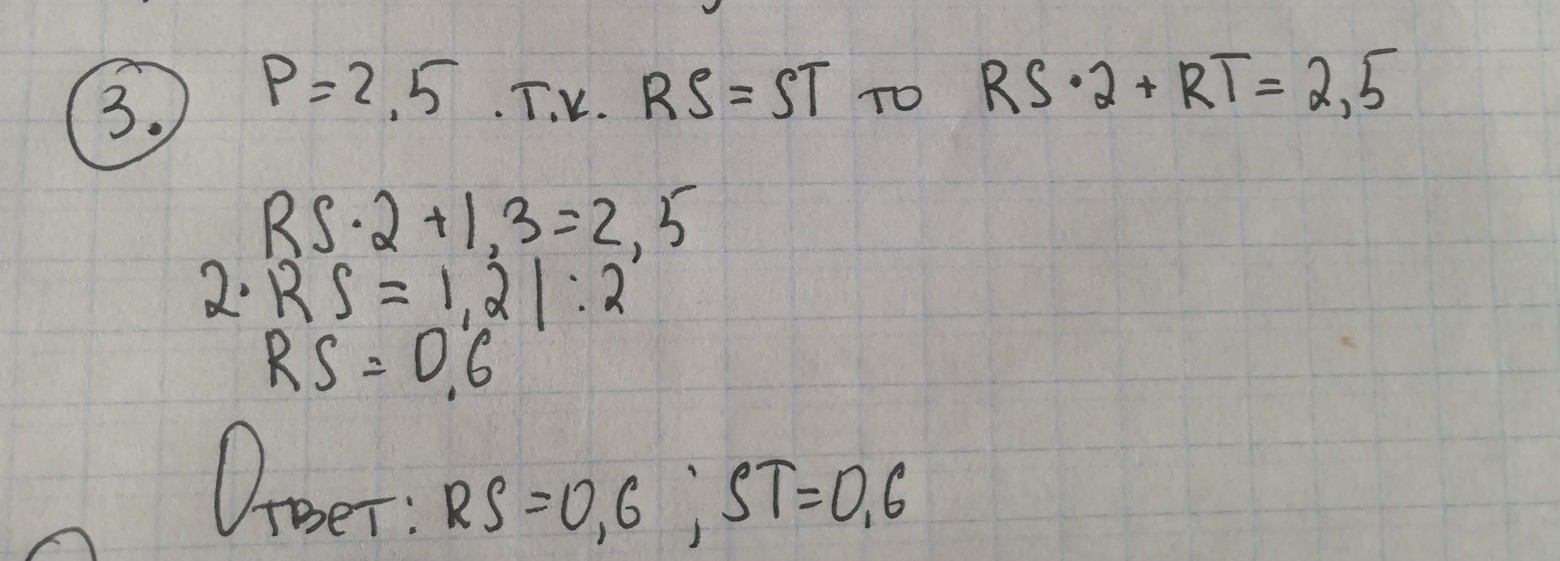 3. P=2,5 .т.к. RS=ST то RS·2+RT=2,5
RS·2+1,3=2,5
2·RS=1,2|:2
RS=0,6
Ответ: RS=0,6 ; ST=0,6